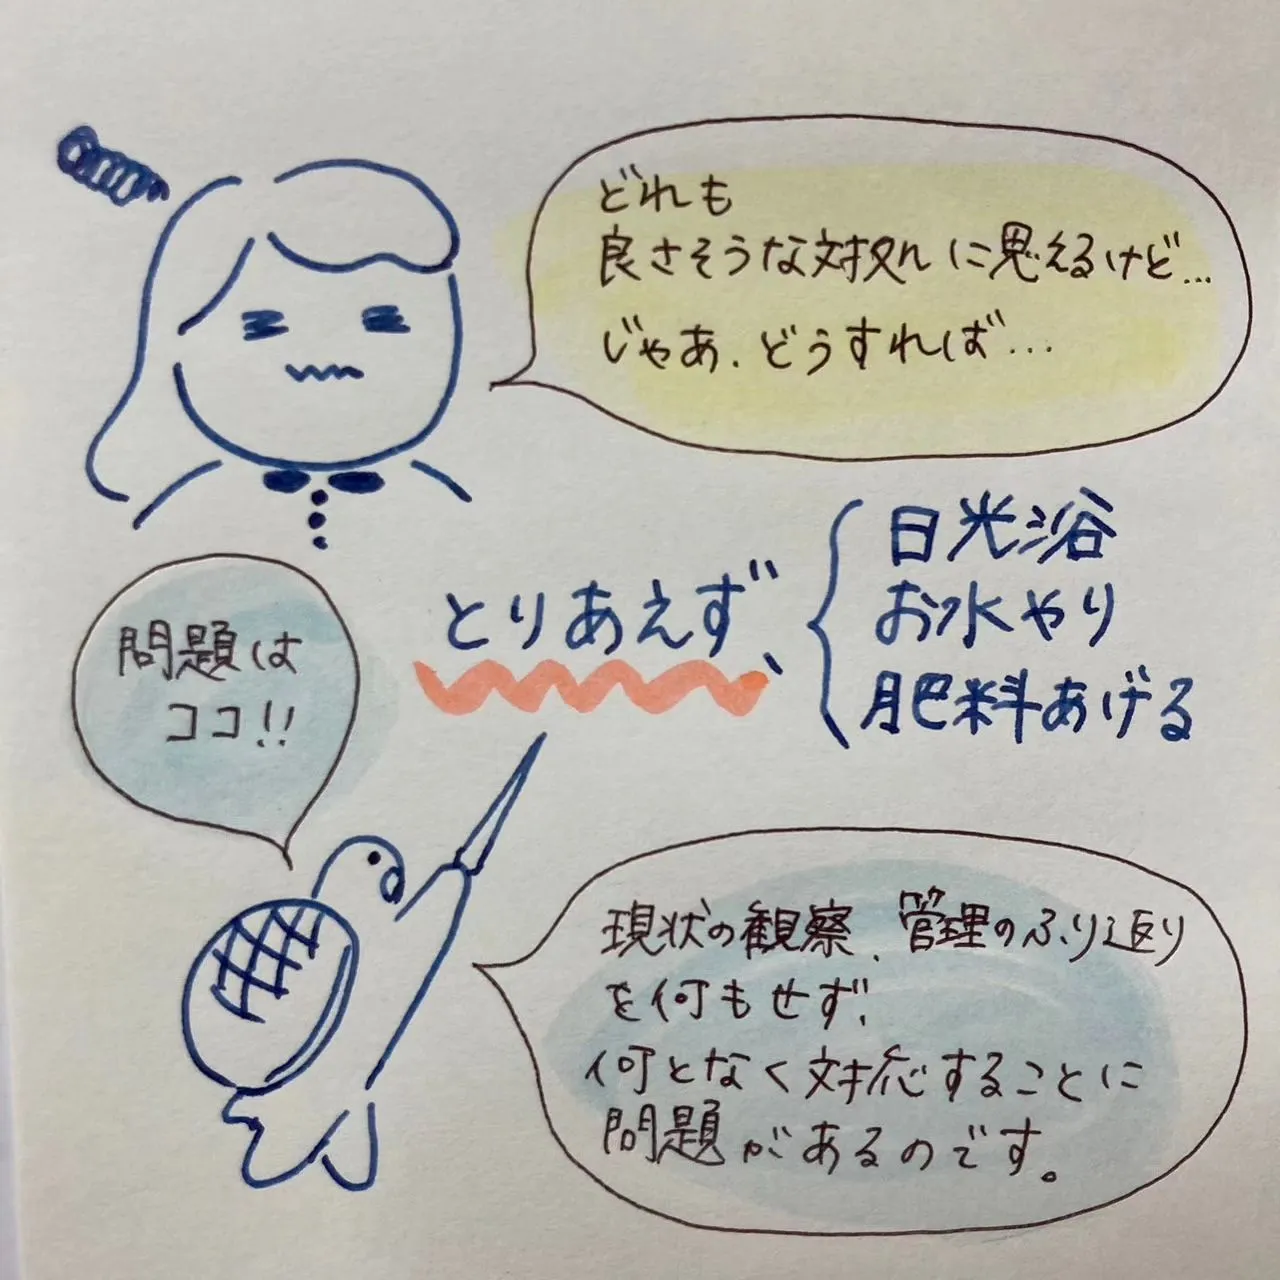 どれも
良さそうな対処に思えるけど…
じゃあ、どうすれば…
とりあえず、
日光浴
お水やり
肥料あげる
問題は
ココ!!
現状の観察、管理のふり返り
を何もせず、
何となく対応することに
問題があるのです。